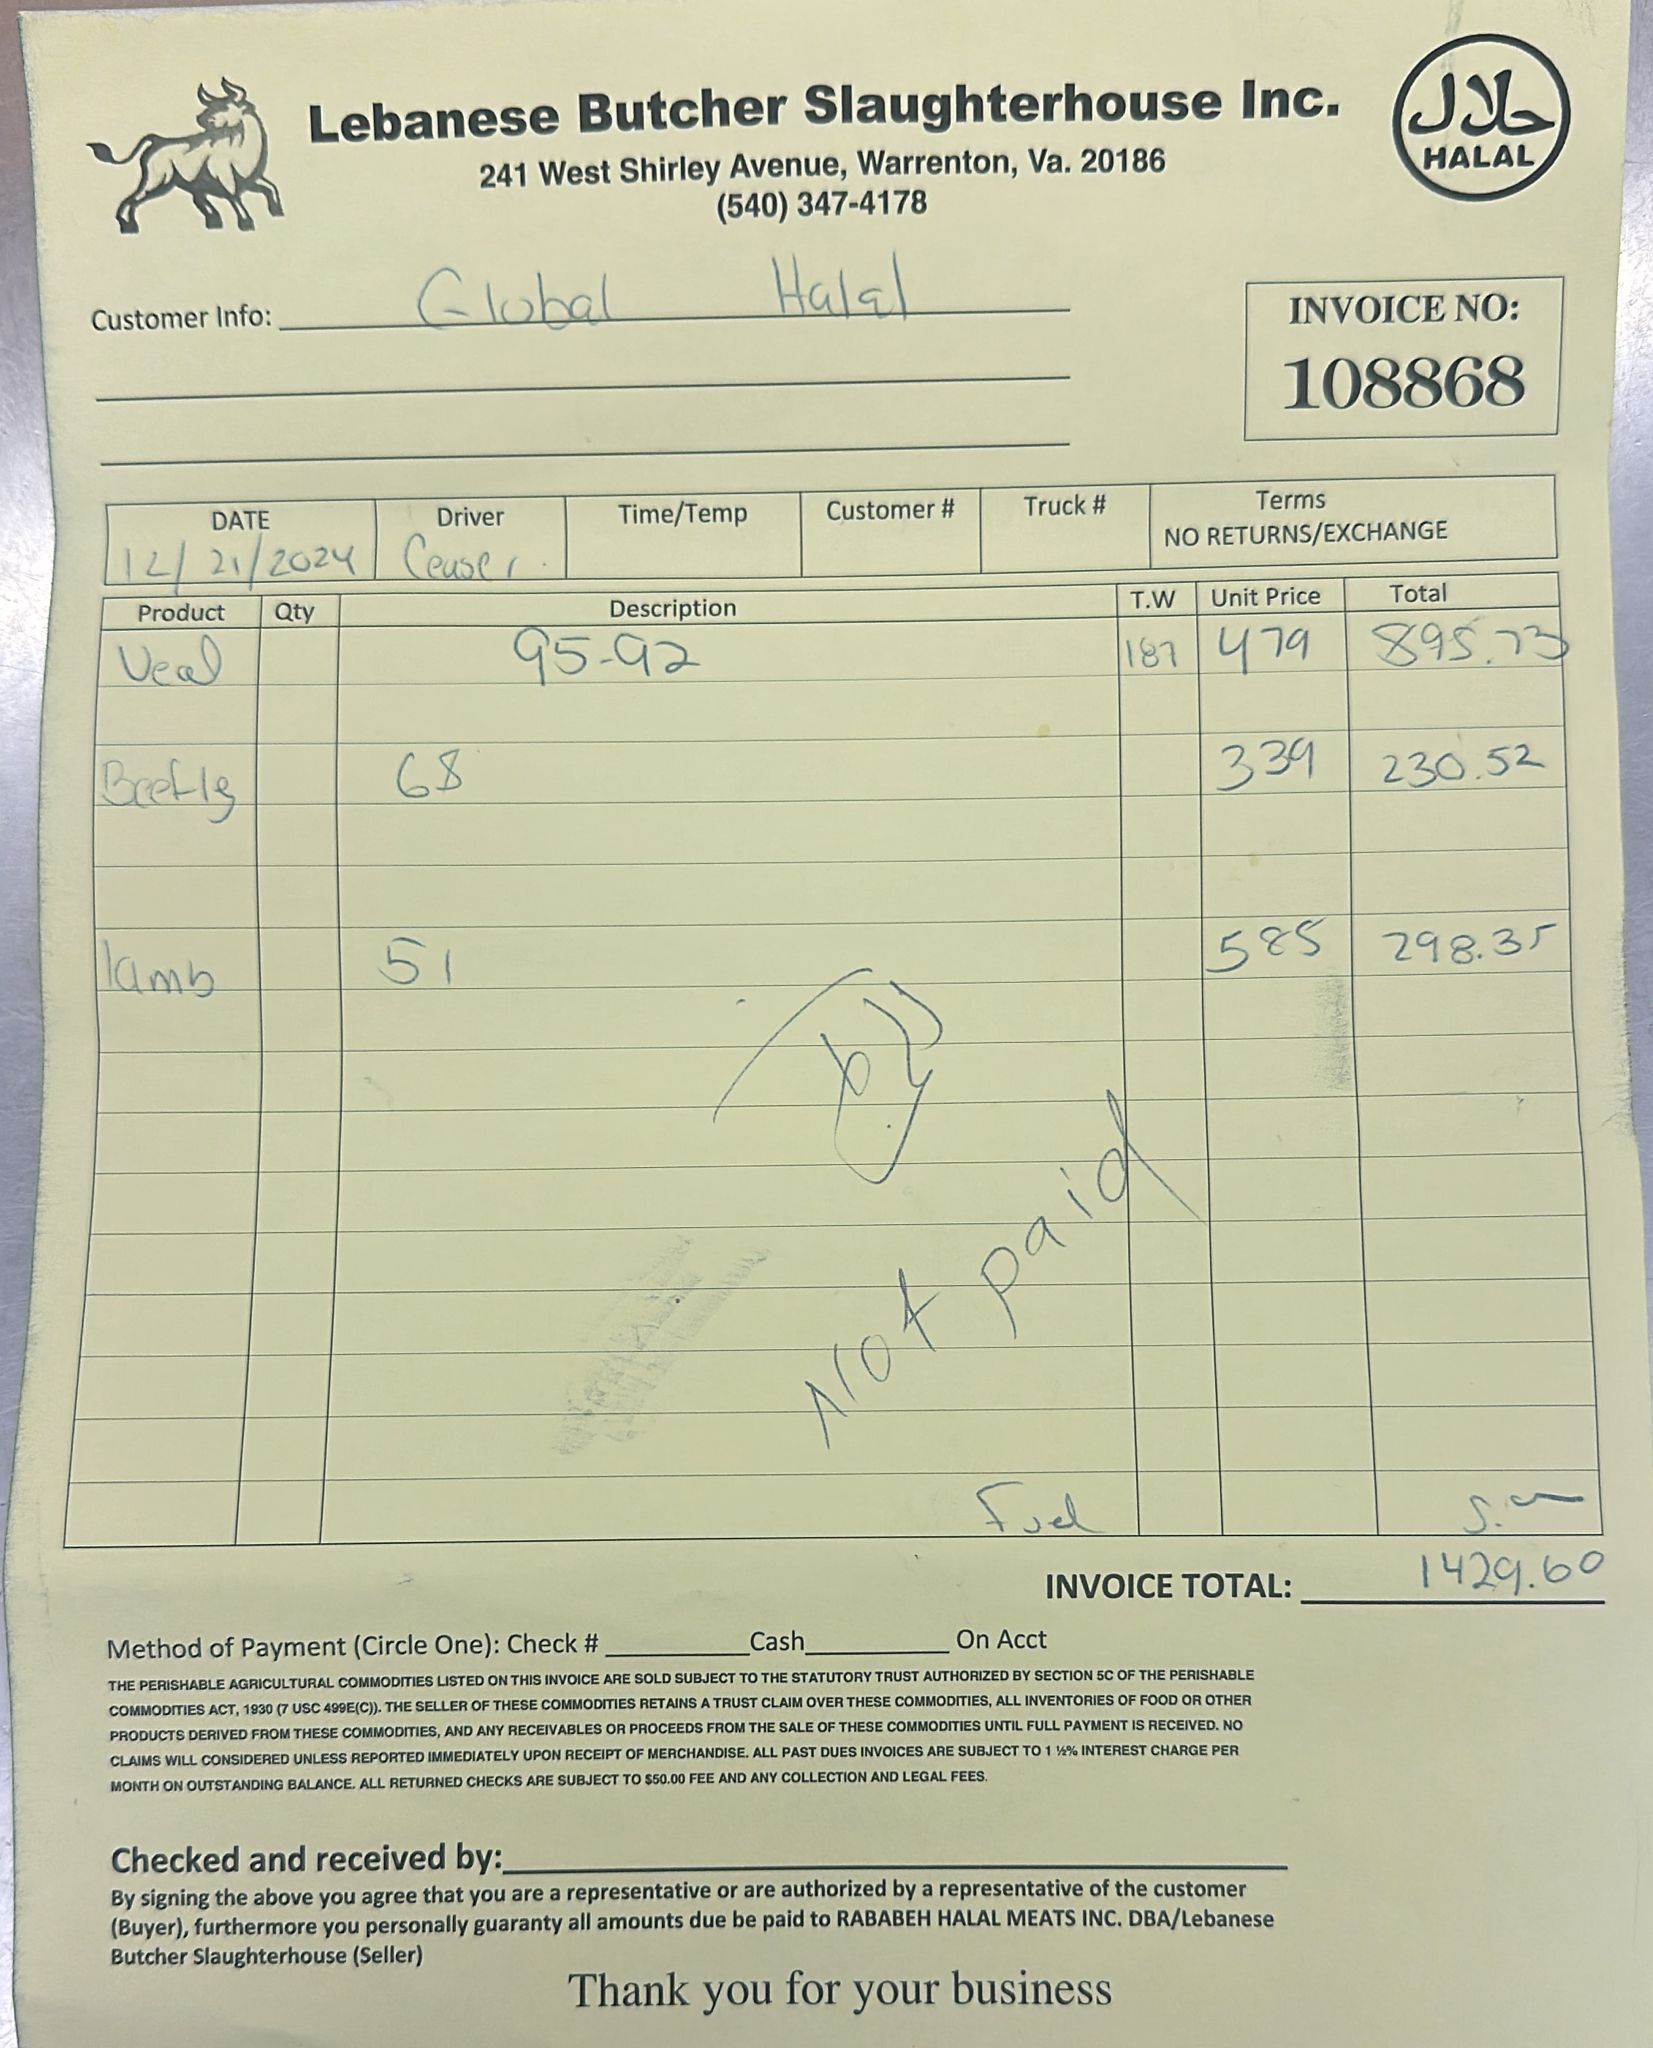 Lebanese Butcher Slaughterhouse Inc.
241 West Shirley Avenue, Warrenton, Va. 20186
(540) 347-4178
حلال
HALAL
Customer Info: Global Halal
INVOICE NO:
108868
DATE Driver Time/Temp Customer # Truck # Terms
NO RETURNS/EXCHANGE
12/21/2024 Ceuser
Product Qty Description T.W Unit Price Total
Veal 95-92 187 479 895.73
Beefleg 68 339 230.52
lamb 51 585 298.35
Not paid
Fuel
INVOICE TOTAL: 1429.60
Method of Payment (Circle One): Check # Cash On Acct
THE PERISHABLE AGRICULTURAL COMMODITIES LISTED ON THIS INVOICE ARE SOLD SUBJECT TO THE STATUTORY TRUST AUTHORIZED BY SECTION 5C OF THE PERISHABLE
COMMODITIES ACT, 1930 (7 USC 499E(C)). THE SELLER OF THESE COMMODITIES RETAINS A TRUST CLAIM OVER THESE COMMODITIES, ALL INVENTORIES OF FOOD OR OTHER
PRODUCTS DERIVED FROM THESE COMMODITIES, AND ANY RECEIVABLES OR PROCEEDS FROM THE SALE OF THESE COMMODITIES UNTIL FULL PAYMENT IS RECEIVED. NO
CLAIMS WILL CONSIDERED UNLESS REPORTED IMMEDIATELY UPON RECEIPT OF MERCHANDISE. ALL PAST DUES INVOICES ARE SUBJECT TO 1 ½% INTEREST CHARGE PER
MONTH ON OUTSTANDING BALANCE. ALL RETURNED CHECKS ARE SUBJECT TO $50.00 FEE AND ANY COLLECTION AND LEGAL FEES.
Checked and received by:
By signing the above you agree that you are a representative or are authorized by a representative of the customer
(Buyer), furthermore you personally guaranty all amounts due be paid to RABABEH HALAL MEATS INC. DBA/Lebanese
Butcher Slaughterhouse (Seller)
Thank you for your business